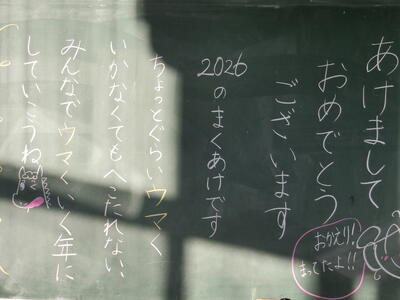 あけまして
おめでとう
ございます
2026
のまくあけです
ちょっとぐらいウマく
いかなくてもへこたれない
みんなでウマくいく年に
していこうね
おかえり!
まってたよ!!